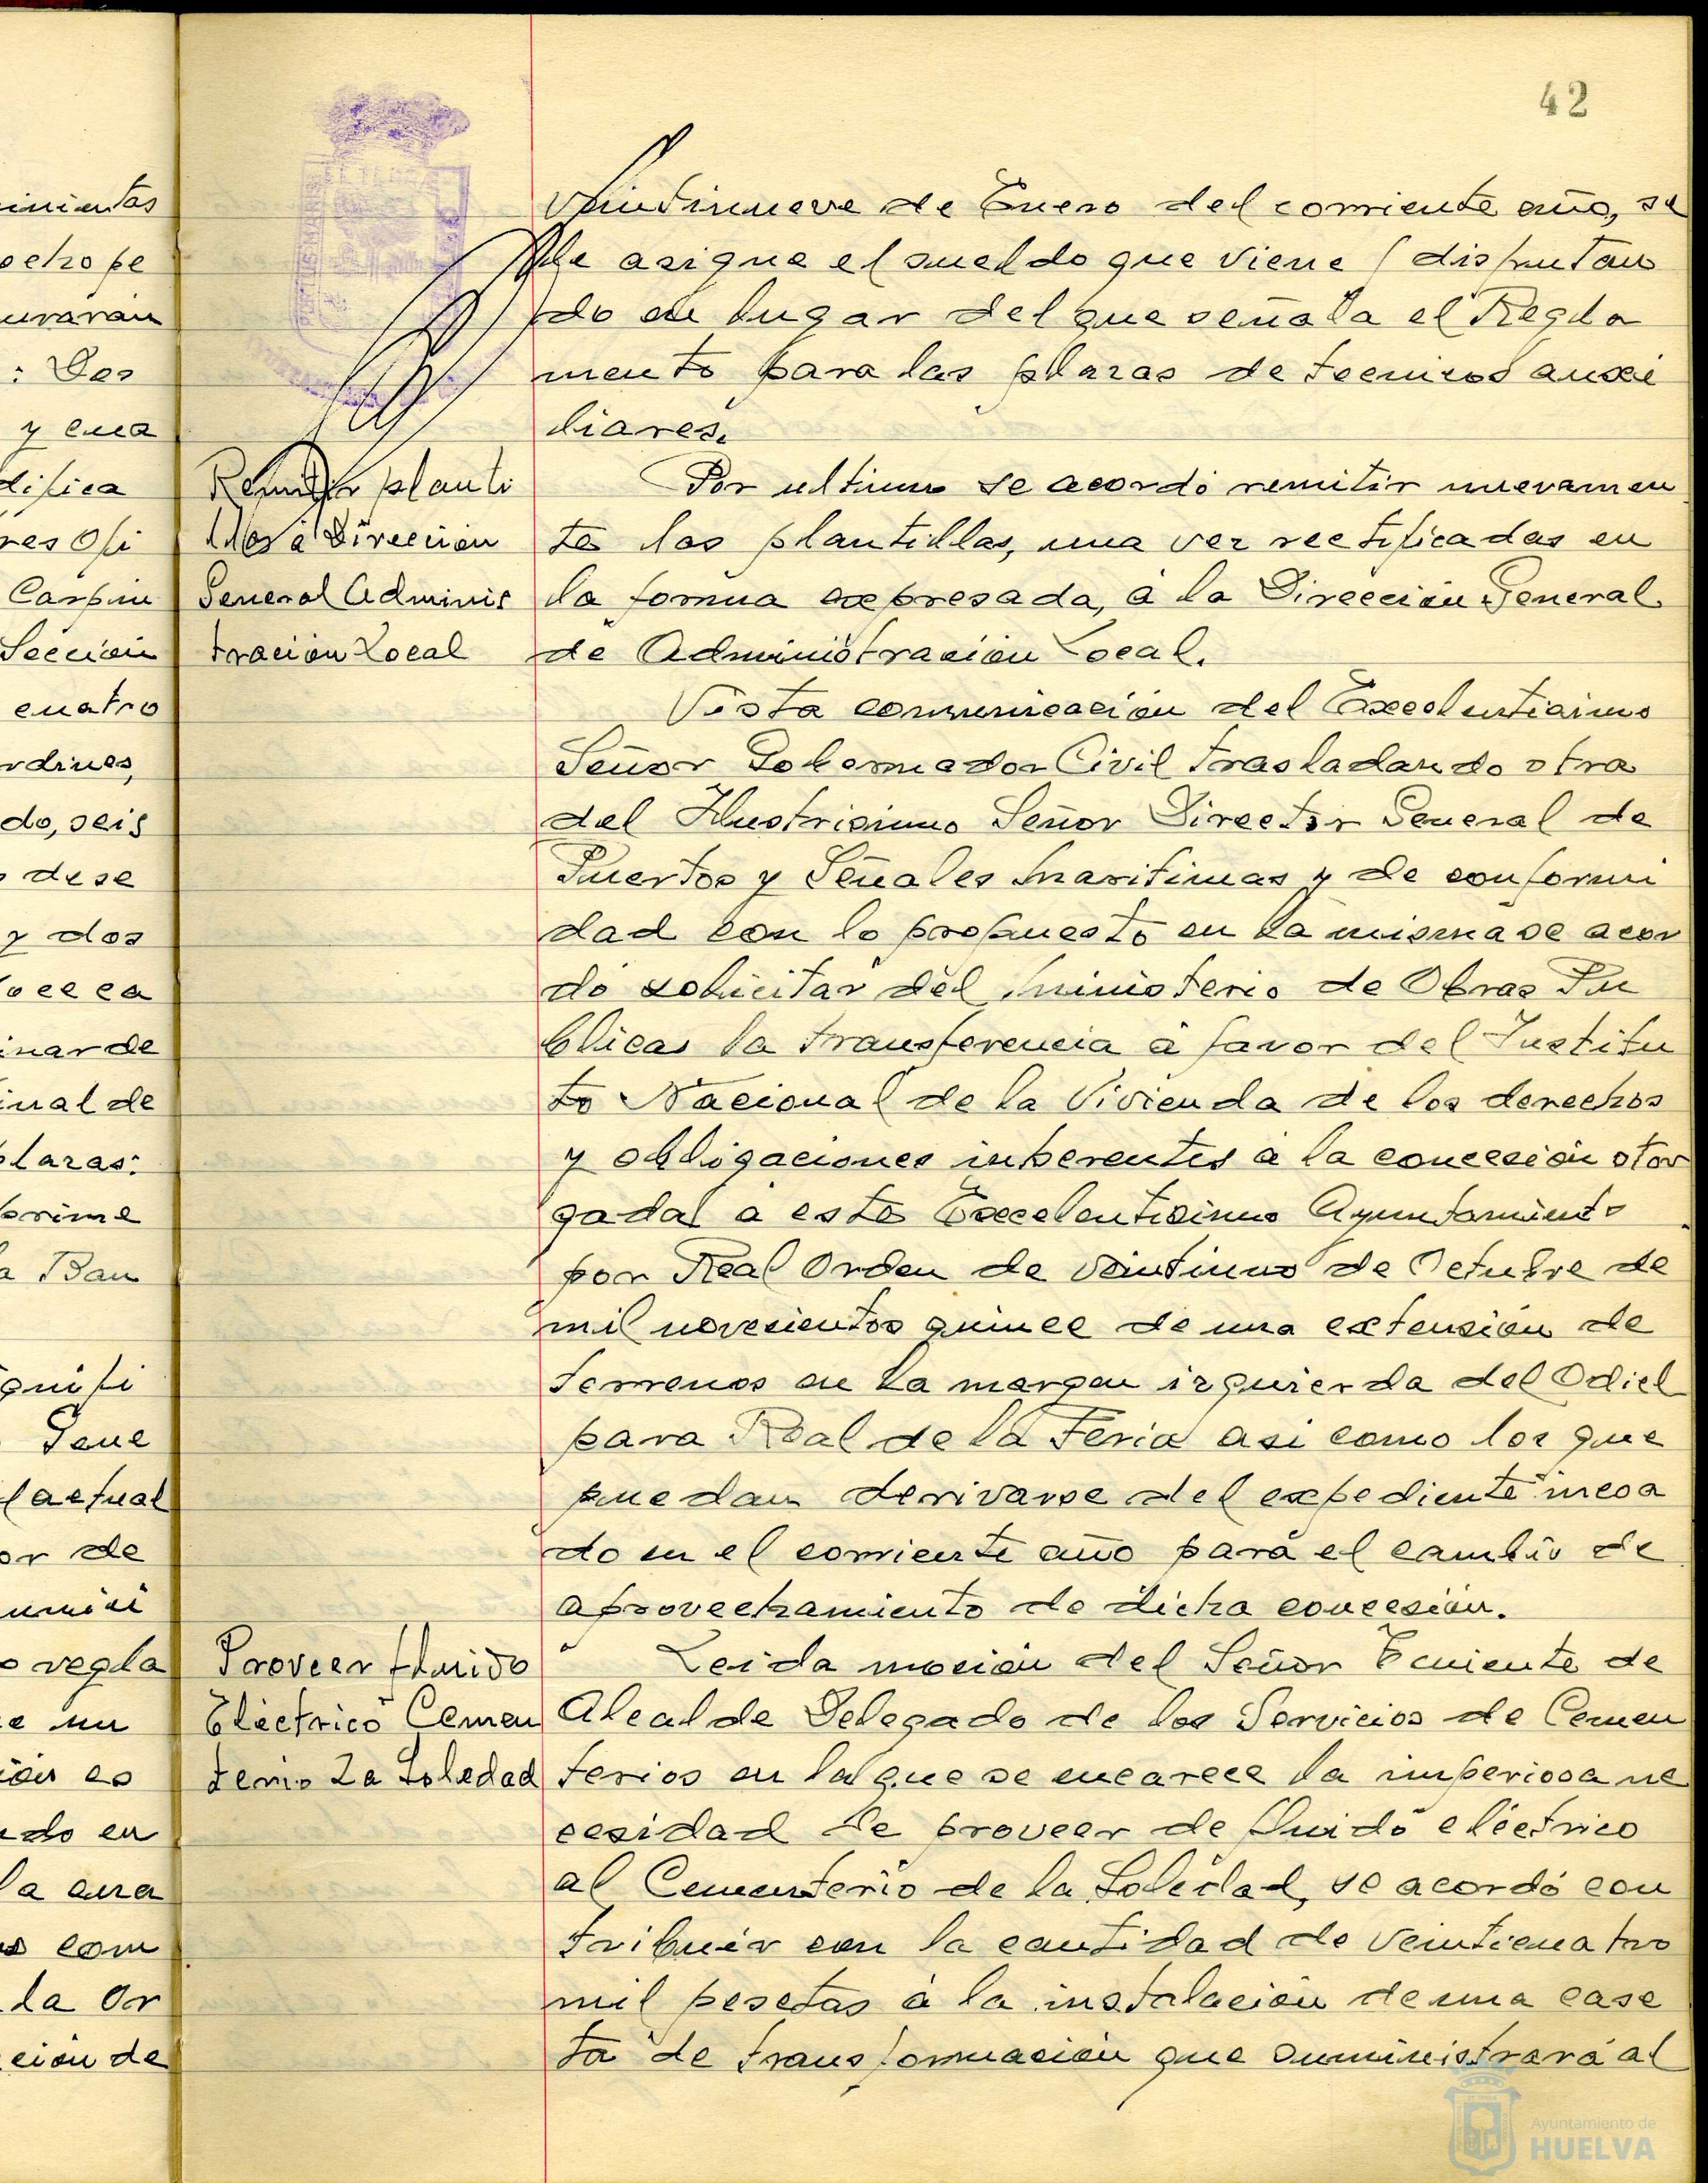 42
Veintinueve de Enero del corriente año, se
le asigne el sueldo que viene disfrutan
do en lugar del que señala el Regla
mento para las plazas de tecnicos auxi
liares.
Remitir planti
llas á Dirección
General Adminis
tración Local
Por ultimo se acordó remitir nuevamen
te las plantillas, una vez rectificadas en
la forma expresada, á la Dirección General
de Administración Local.
Vista comunicación del Excelentisimo
Señor Gobernador Civil trasladando otra
del Ilustrisimo Señor Director General de
Puertos y Señales Maritimas y de conformi
dad con lo propuesto en la misma se acor
dó solicitar del Ministerio de Obras Pu
blicas la transferencia á favor del Institu
to Nacional de la Vivienda de los derechos
y obligaciones inherentes á la concesión otor
gada á este Excelentisimo Ayuntamiento
por Real Orden de veintiuno de Octubre de
mil novecientos quince de una extensión de
terrenos en la margen izquierda del Odiel
para Real de la Feria asi como los que
puedan derivarse del expediente incoa
do en el corriente año para el cambio de
aprovechamiento de dicha concesión.
Proveer fluido
Eléctrico Cemen
terio La Soledad
Leida moción del Señor Teniente de
Alcalde Delegado de los Servicios de Cemen
terios en la que se encarece la imperiosa ne
cesidad de proveer de fluido eléctrico
al Cementerio de la Soledad, se acordó con
tribuir con la cantidad de veinticuatro
mil pesetas á la instalación de una case
ta de transformación que suministrará al
Ayuntamiento de
HUELVA